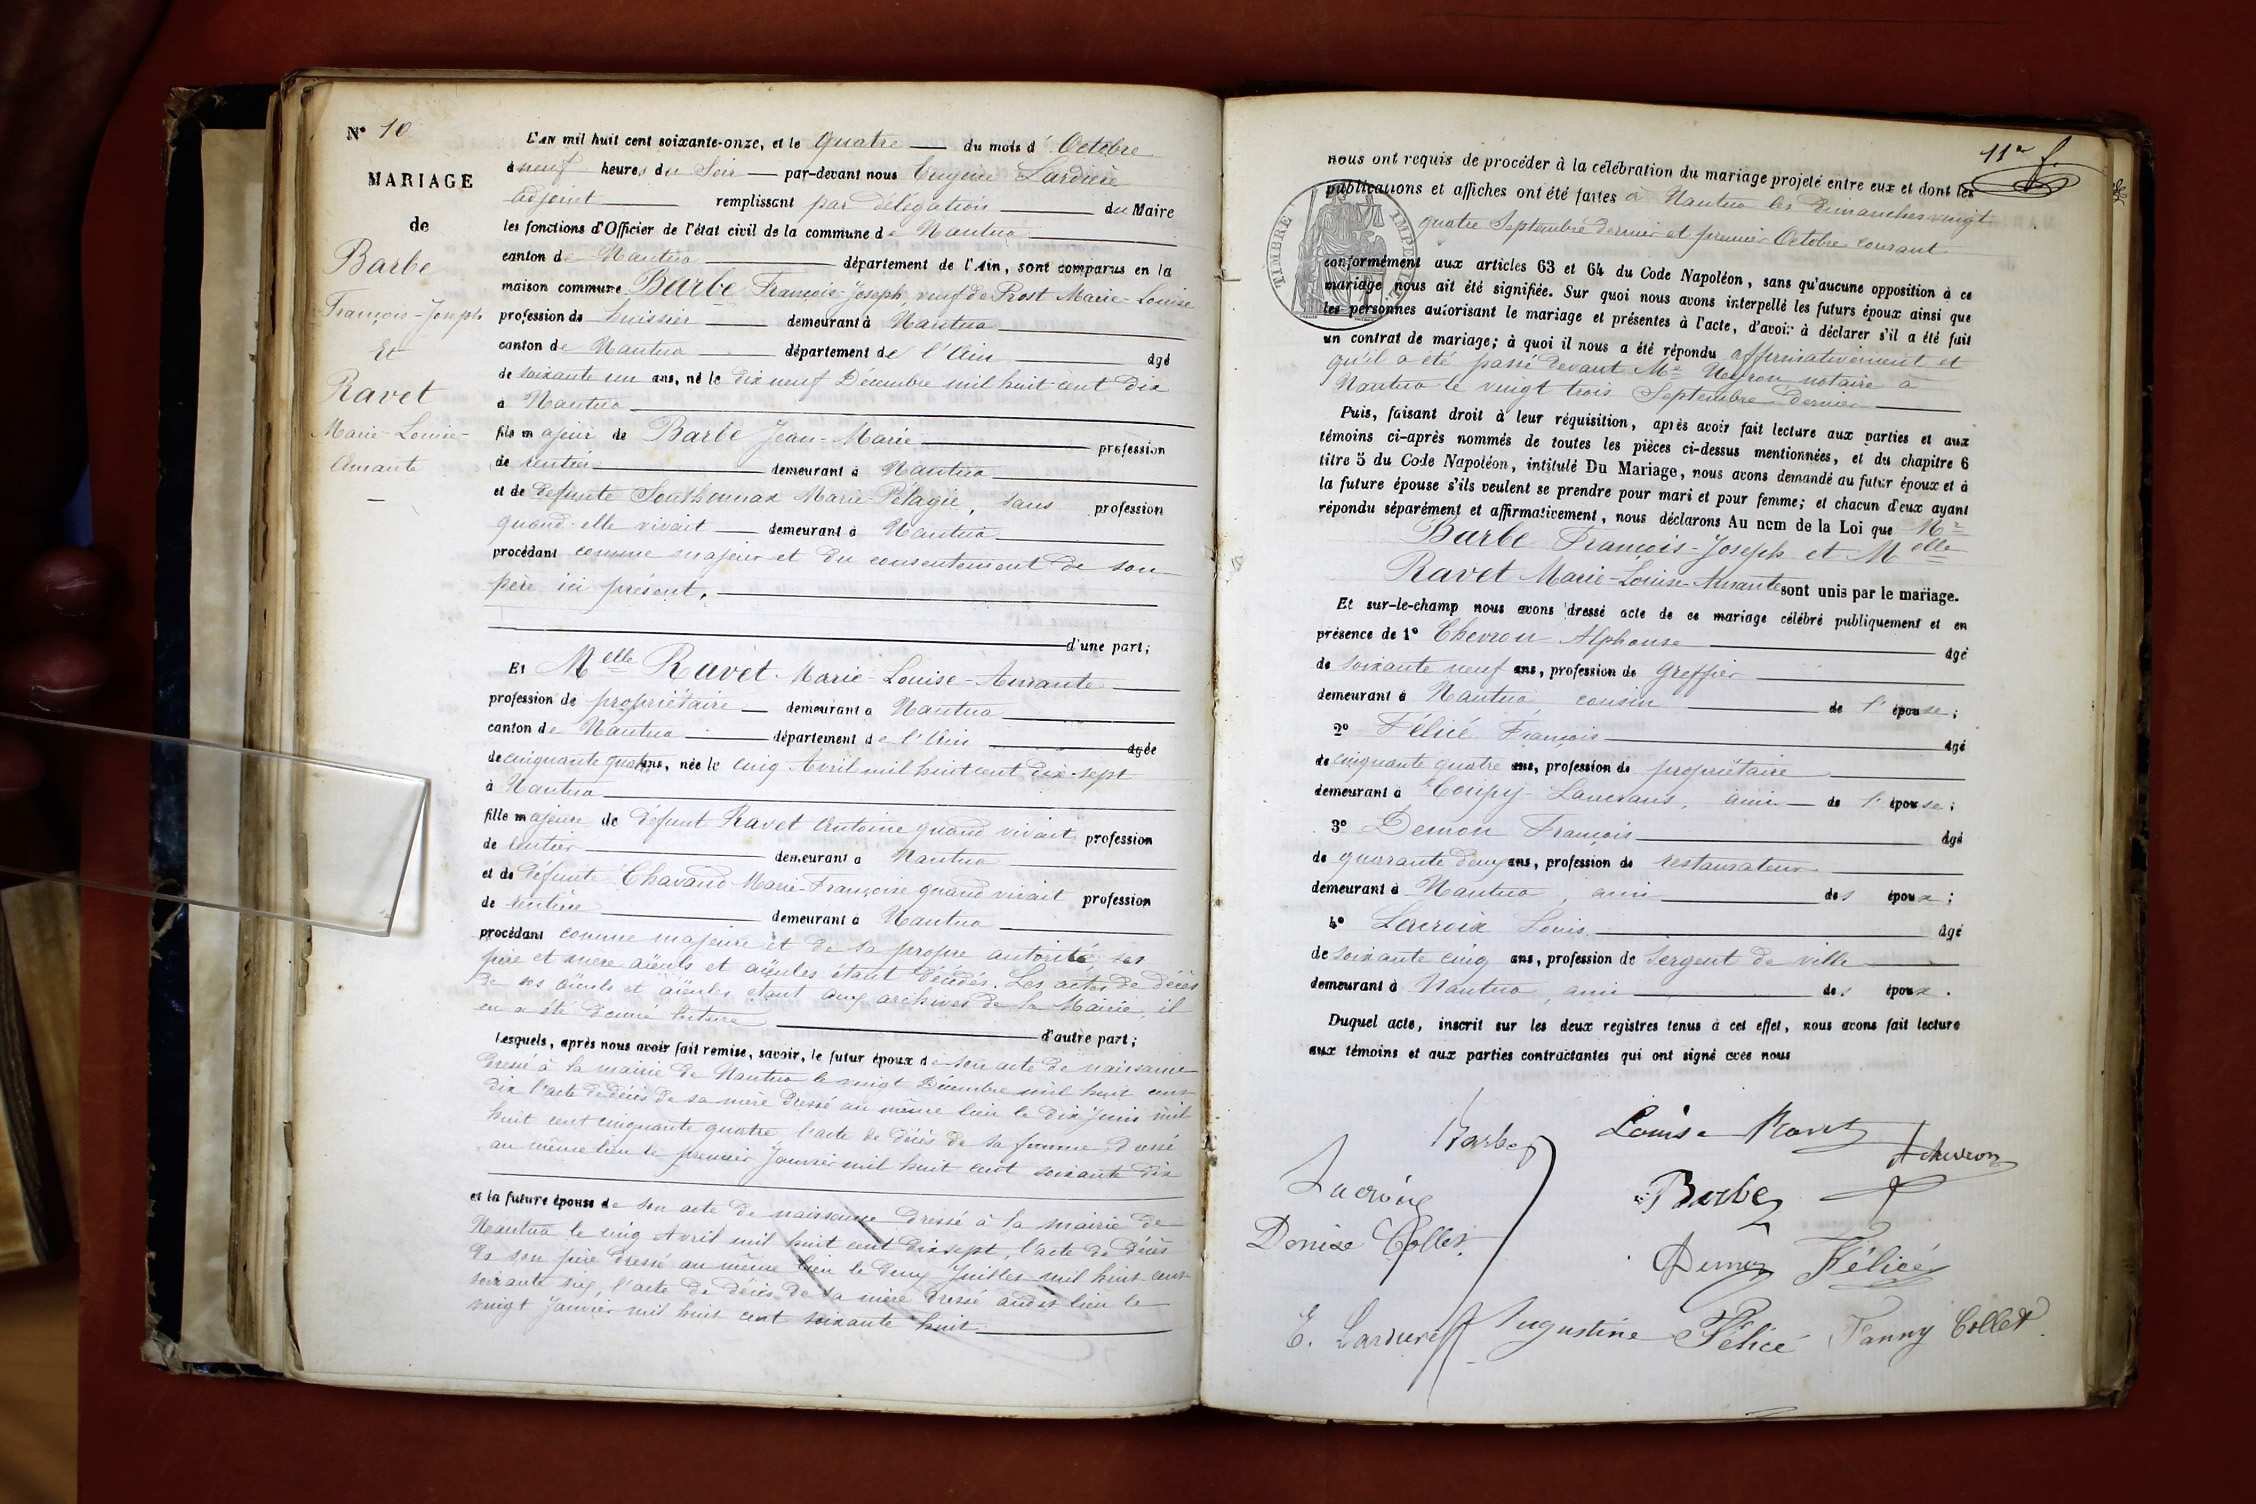 N° 10
MARIAGE
de
Barbe
François-Joseph
Et
Ravet
Marie-Louise-
Amante
L'an mil huit cent soixante-onze, et le quatre du mois d'Octobre
à neuf heures du Soir par-devant nous Eugène
adjoint remplissant par délégation du Maire
les fonctions d'Officier de l'état civil de la commune de Nantua
canton de Nantua département de l'Ain, sont comparus en la
maison commune Barbe François-Joseph, veuf de Prost Marie-Louise
profession de huissier demeurant à Nantua
canton de Nantua département de l'Ain âgé
de soixante un ans, né le dix neuf Décembre mil huit cent dix
à Nantua
fils majeur de Barbe Jean-Marie profession
de rentier demeurant à Nantua
et de défunte Southonnax Marie-Pélagie, sans profession
quand elle vivait demeurant à Nantua
procédant comme majeur et du consentement de son
père ici présent.
d'une part;
Et Melle Ravet Marie-Louise-Amante
profession de propriétaire demeurant à Nantua
canton de Nantua département de l'Ain âgée
de cinquante quatre ans, née le cinq Avril mil huit cent dix-sept
à Nantua
fille majeure de défunt Ravet Antoine quand vivait profession
de rentier demeurant à Nantua
et de défunte Chavand Marie-Françoise quand vivait profession
de rentière demeurant à Nantua
procédant comme majeure et de sa propre autorité ses
père et mère aïeuls et aïeules étant décédés. Les actes de décès
de ses aïeuls et aïeules étant aux archives de la Mairie, il
en a été donné lecture
d'autre part;
Lesquels, après nous avoir fait remise, savoir, le futur époux de son acte de naissance
dressé à la mairie de Nantua le vingt Décembre mil huit cent
dix l'acte de décès de sa mère dressé au même lieu le dix Juin mil
huit cent cinquante quatre l'acte de décès de sa femme dressé
au même lieu le premier Janvier mil huit cent soixante dix
et la future épouse de son acte de naissance dressé à la mairie de
Nantua le cinq Avril mil huit cent dix sept, l'acte de décès
de son père dressé au même lieu le deux Juillet mil huit cent
soixante six, l'acte de décès de sa mère dressé audit lieu le
vingt Janvier mil huit cent soixante huit
11e f.
nous ont requis de procéder à la célébration du mariage projeté entre eux et dont les
publications et affiches ont été faites à Nantua les Dimanches vingt
quatre Septembre dernier et premier Octobre courant
TIMBRE IMPÉRIAL
conformément aux articles 63 et 64 du Code Napoléon, sans qu'aucune opposition à ce
mariage nous ait été signifiée. Sur quoi nous avons interpellé les futurs époux ainsi que
les personnes autorisant le mariage et présentes à l'acte, d'avoir à déclarer s'il a été fait
un contrat de mariage; à quoi il nous a été répondu affirmativement et
qu'il a été passé devant Me Neyron notaire à
Nantua le vingt trois Septembre dernier
Puis, faisant droit à leur réquisition, après avoir fait lecture aux parties et aux
témoins ci-après nommés de toutes les pièces ci-dessus mentionnées, et du chapitre 6
titre 5 du Code Napoléon, intitulé Du Mariage, nous avons demandé au futur époux et à
la future épouse s'ils veulent se prendre pour mari et pour femme; et chacun d'eux ayant
répondu séparément et affirmativement, nous déclarons Au nom de la Loi que Mr
Barbe François-Joseph et Melle
Ravet Marie-Louise-Amante sont unis par le mariage.
Et sur-le-champ nous avons dressé acte de ce mariage célébré publiquement et en
présence de 1° Chevron Alphonse âgé
de soixante neuf ans, profession de Greffier
demeurant à Nantua, cousin de l'épouse;
2° Félicé François âgé
de cinquante quatre ans, profession de propriétaire
demeurant à ami de l'épouse;
3° Demon François âgé
de quarante deux ans, profession de restaurateur
demeurant à Nantua, ami des époux;
4° Lacroix Louis âgé
de soixante cinq ans, profession de Sergent de ville
demeurant à Nantua, ami des époux.
Duquel acte, inscrit sur les deux registres tenus à cet effet, nous avons fait lecture
aux témoins et aux parties contractantes qui ont signé avec nous
Barbe Louise Ravet
A Chevron
Lacroix Barbe
Denise Collet
Demon Félicé
E. Augustine Félicé Fanny Collet